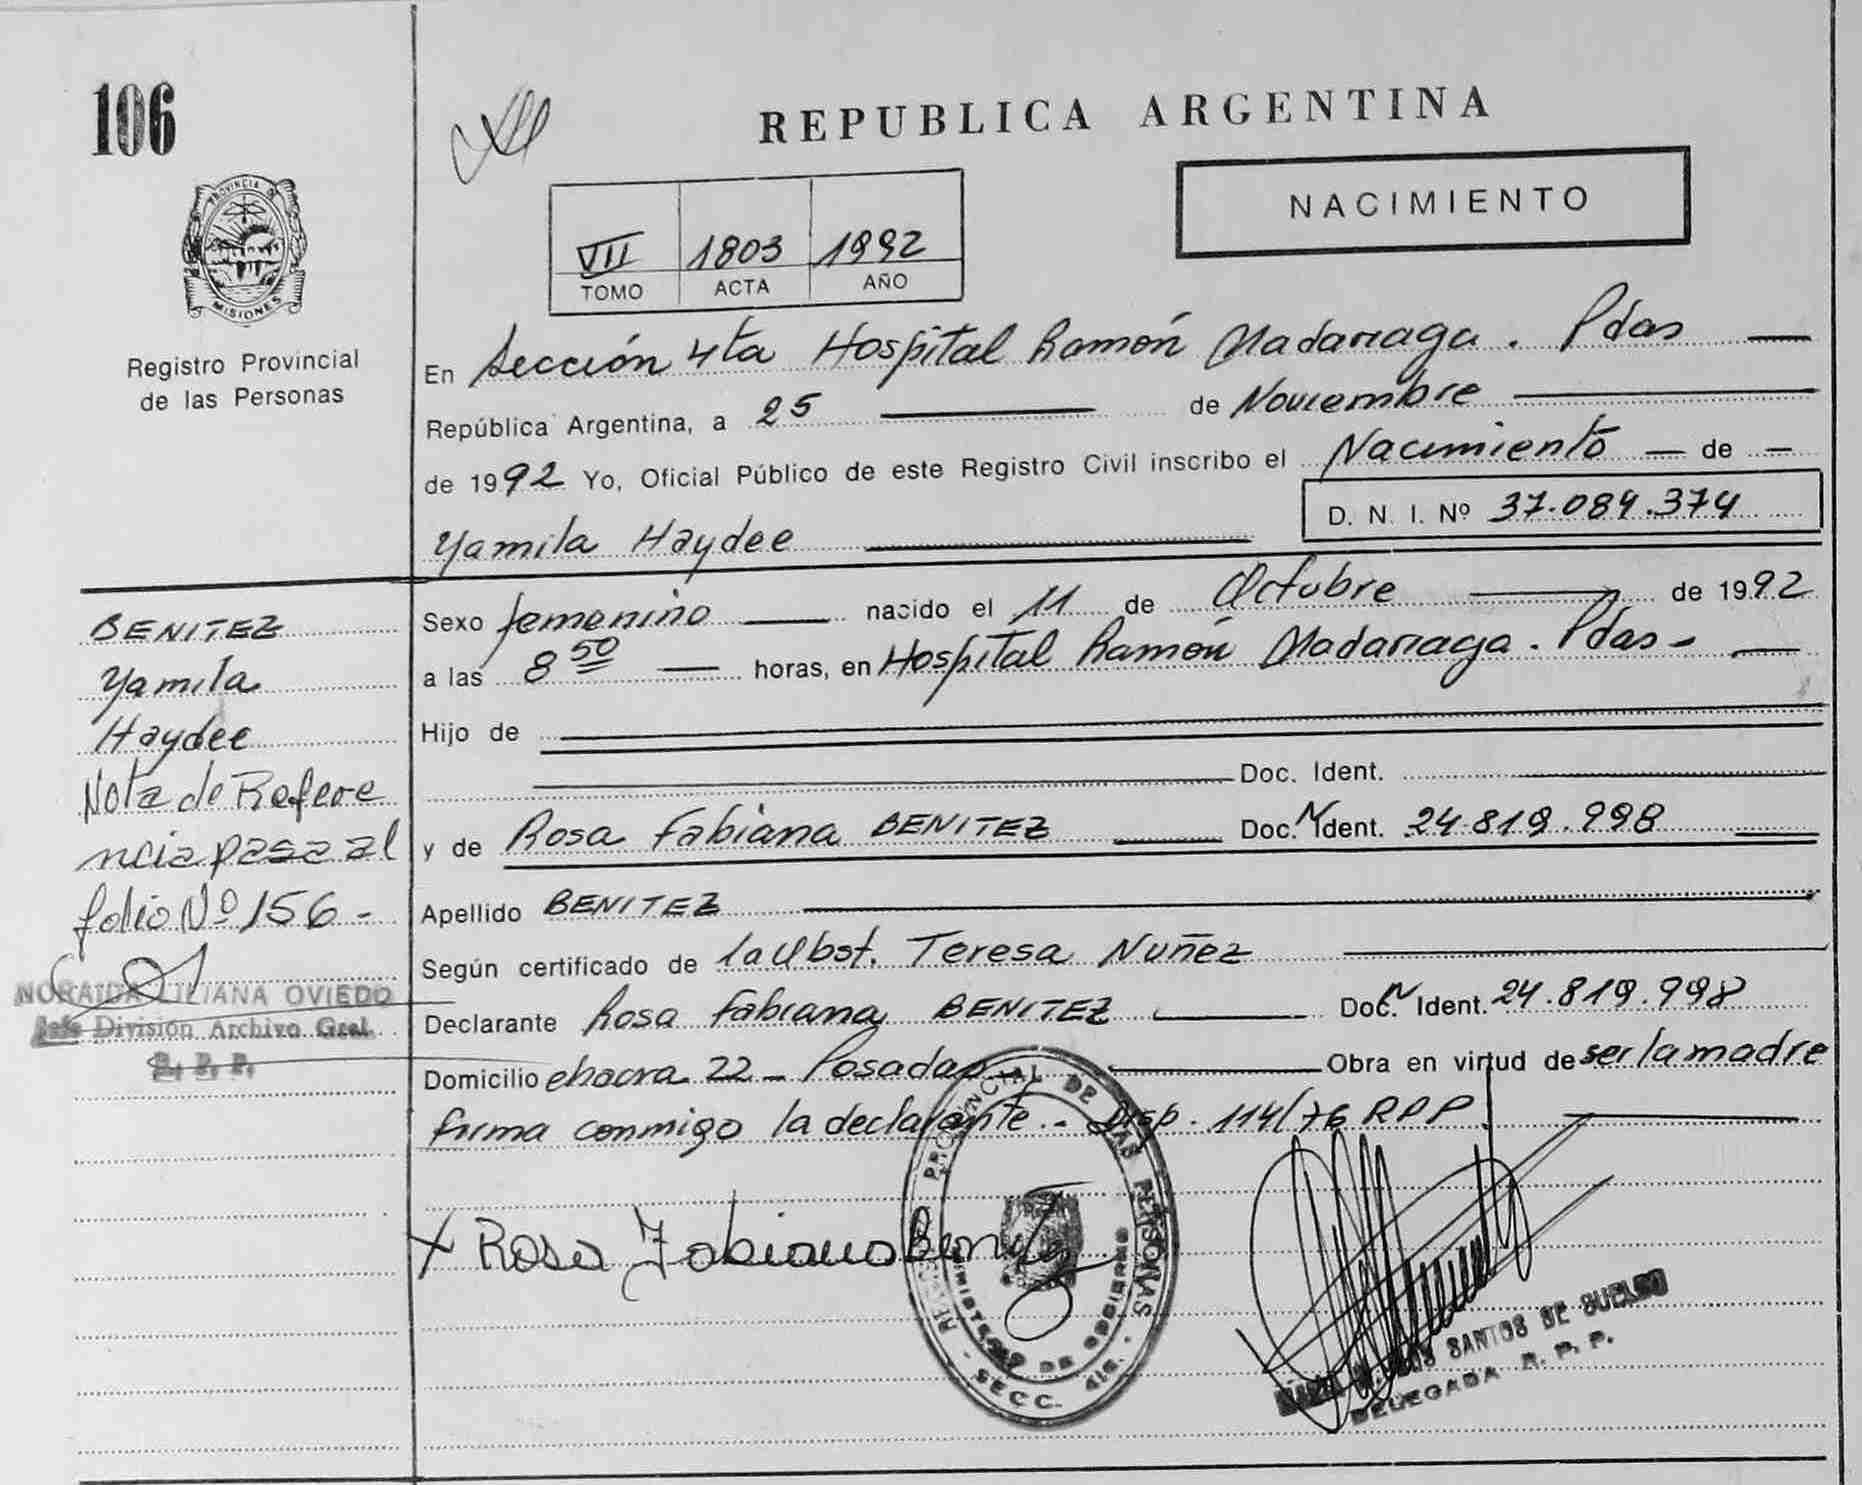 106
REPUBLICA ARGENTINA
NACIMIENTO
VII 1803 1992
TOMO ACTA AÑO
PROVINCIA DE MISIONES
Registro Provincial
de las Personas
En Sección 4ta Hospital Ramón Madariaga. Pdas —
República Argentina, a 25 — de Noviembre —
de 1992 Yo, Oficial Público de este Registro Civil inscribo el Nacimiento — de —
D. N. I. Nº 37.084.374
Yamila Haydee —
BENITEZ
Yamila
Haydee
Nota de Refere
ncia pasa al
folio Nº 156 -
NORAIDA LILIANA OVIEDO
Jefe División Archivo Gral.
R. P. P.
Sexo femenino — nacido el 11 de Octubre — de 1992
a las 8 50 — horas, en Hospital Ramón Madariaga. Pdas - —
Hijo de —
— Doc. Ident.
y de Rosa Fabiana BENITEZ — Doc. Ident. 24.819.998 —
Apellido BENITEZ —
Según certificado de la Obst. Teresa Nuñez —
Declarante Rosa Fabiana BENITEZ — Doc. Ident. 24.819.998
Domicilio chacra 22 - Posadas — Obra en virtud de ser la madre
firma conmigo la declarante.- Disp. 114/76 RPP —
X Rosa Fabiana Benitez
REGISTRO PROVINCIAL DE LAS PERSONAS
MINISTERIO DE GOBIERNO
- SECC. 4ta. -
SANTOS DE
DELEGADA R. P. P.